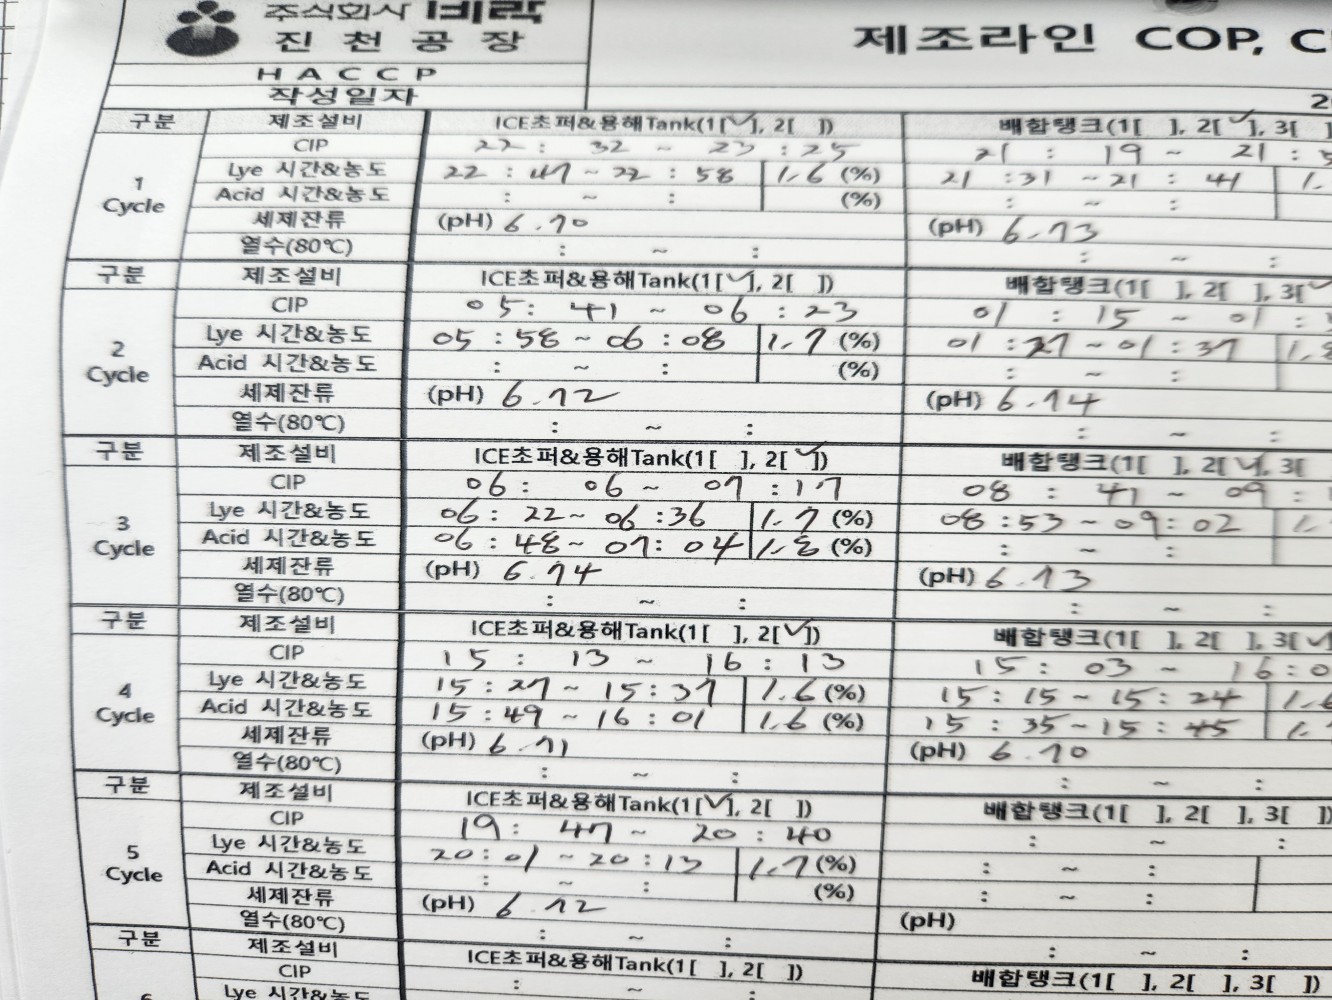 주식회사 비락
진천공장
제조라인 COP, C
HACCP
작성일자
구분 제조설비 ICE초퍼&용해Tank(1[✓], 2[ ]) 배합탱크(1[ ], 2[✓], 3[ ]
1 Cycle
CIP 22 : 32 ~ 23 : 25 21 : 19 ~ 21 :
Lye 시간&농도 22 : 47 ~ 22 : 58 1.6 (%) 21 : 31 ~ 21 : 41 1.
Acid 시간&농도 : ~ : (%) : ~ :
세제잔류 (pH) 6.70 (pH) 6.73
열수(80℃) : ~ : : ~ :
구분 제조설비 ICE초퍼&용해Tank(1[✓], 2[ ]) 배합탱크(1[ ], 2[ ], 3[✓
2 Cycle
CIP 05 : 41 ~ 06 : 23 01 : 15 ~ 01 :
Lye 시간&농도 05 : 58 ~ 06 : 08 1.7 (%) 01 : 27 ~ 01 : 37 1.8
Acid 시간&농도 : ~ : (%) : ~ :
세제잔류 (pH) 6.72 (pH) 6.74
열수(80℃) : ~ : : ~ :
구분 제조설비 ICE초퍼&용해Tank(1[ ], 2[✓]) 배합탱크(1[ ], 2[✓], 3[
3 Cycle
CIP 06 : 06 ~ 07 : 17 08 : 41 ~ 09 :
Lye 시간&농도 06 : 22 ~ 06 : 36 1.7 (%) 08 : 53 ~ 09 : 02 1.
Acid 시간&농도 06 : 48 ~ 07 : 04 1.8 (%) : ~ :
세제잔류 (pH) 6.74 (pH) 6.73
열수(80℃) : ~ : : ~ :
구분 제조설비 ICE초퍼&용해Tank(1[ ], 2[✓]) 배합탱크(1[ ], 2[ ], 3[✓
4 Cycle
CIP 15 : 13 ~ 16 : 13 15 : 03 ~ 16 : 0
Lye 시간&농도 15 : 27 ~ 15 : 37 1.6 (%) 15 : 15 ~ 15 : 24 1.6
Acid 시간&농도 15 : 49 ~ 16 : 01 1.6 (%) 15 : 35 ~ 15 : 45 1.
세제잔류 (pH) 6.71 (pH) 6.70
열수(80℃) : ~ : : ~ :
구분 제조설비 ICE초퍼&용해Tank(1[✓], 2[ ]) 배합탱크(1[ ], 2[ ], 3[ ])
5 Cycle
CIP 19 : 47 ~ 20 : 40 : ~ :
Lye 시간&농도 20 : 01 ~ 20 : 13 1.7 (%) : ~ :
Acid 시간&농도 : ~ : (%) : ~ :
세제잔류 (pH) 6.72 (pH)
열수(80℃) : ~ : : ~ :
구분 제조설비 ICE초퍼&용해Tank(1[ ], 2[ ]) 배합탱크(1[ ], 2[ ], 3[ ])
6
CIP : ~ : : ~ :
Lye 시간&농도